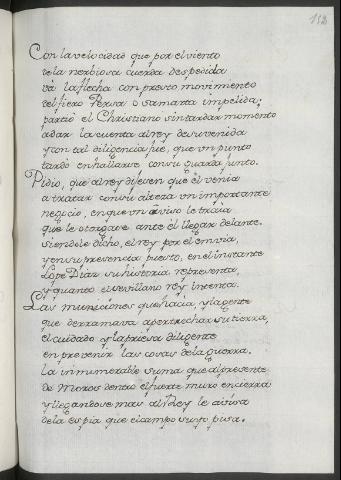 112
Con la velocidad que por el viento
de la nerbiosa cuerda despedida
vá la flecha con presto movimiento
del fiero Persa o samarita impelida;
partió el Christiano sin tardar momento
a dar la cuenta al rey de su venida
y con tal diligencia fue, que un punto
tardó en hallarse con su guarda junto.
Pidio, que al rey dijesen que el venia
a tratar con su alteza un importante
negocio, en que un aviso le traia
que le otorgase ante él llegar delante.
Siendole dicho, el rey por el envia,
y en su presencia puesto, en el instante
Lope Diaz su historia representa,
y quanto el sevillano rey intenta.
Las municiones que hacia, y la gente
que derramava a pertrechar su tierra,
el cuidado y la priesa diligente
en prevenir las cosas de la guerra.
la innumerable suma que al presente
de Moros dentro el fuerte muro encierra
y llegandose mas al Rey le avisa
de la espia que el campo suyo pisa.